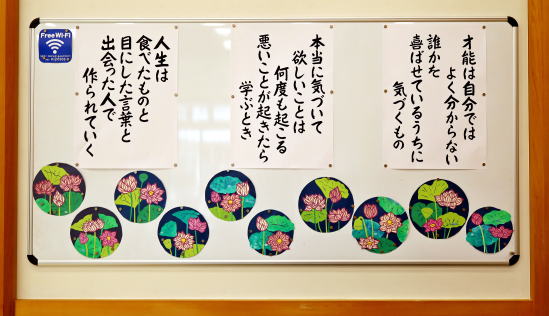 才能は自分では
よく分からない
誰かを
喜ばせているうちに
気づくもの
本当に気づいて
欲しいことは
何度も起こる
悪いことが起きたら
学ぶとき
人生は
食べたものと
目にした言葉と
出会った人で
作られていく
Free Wi-Fi